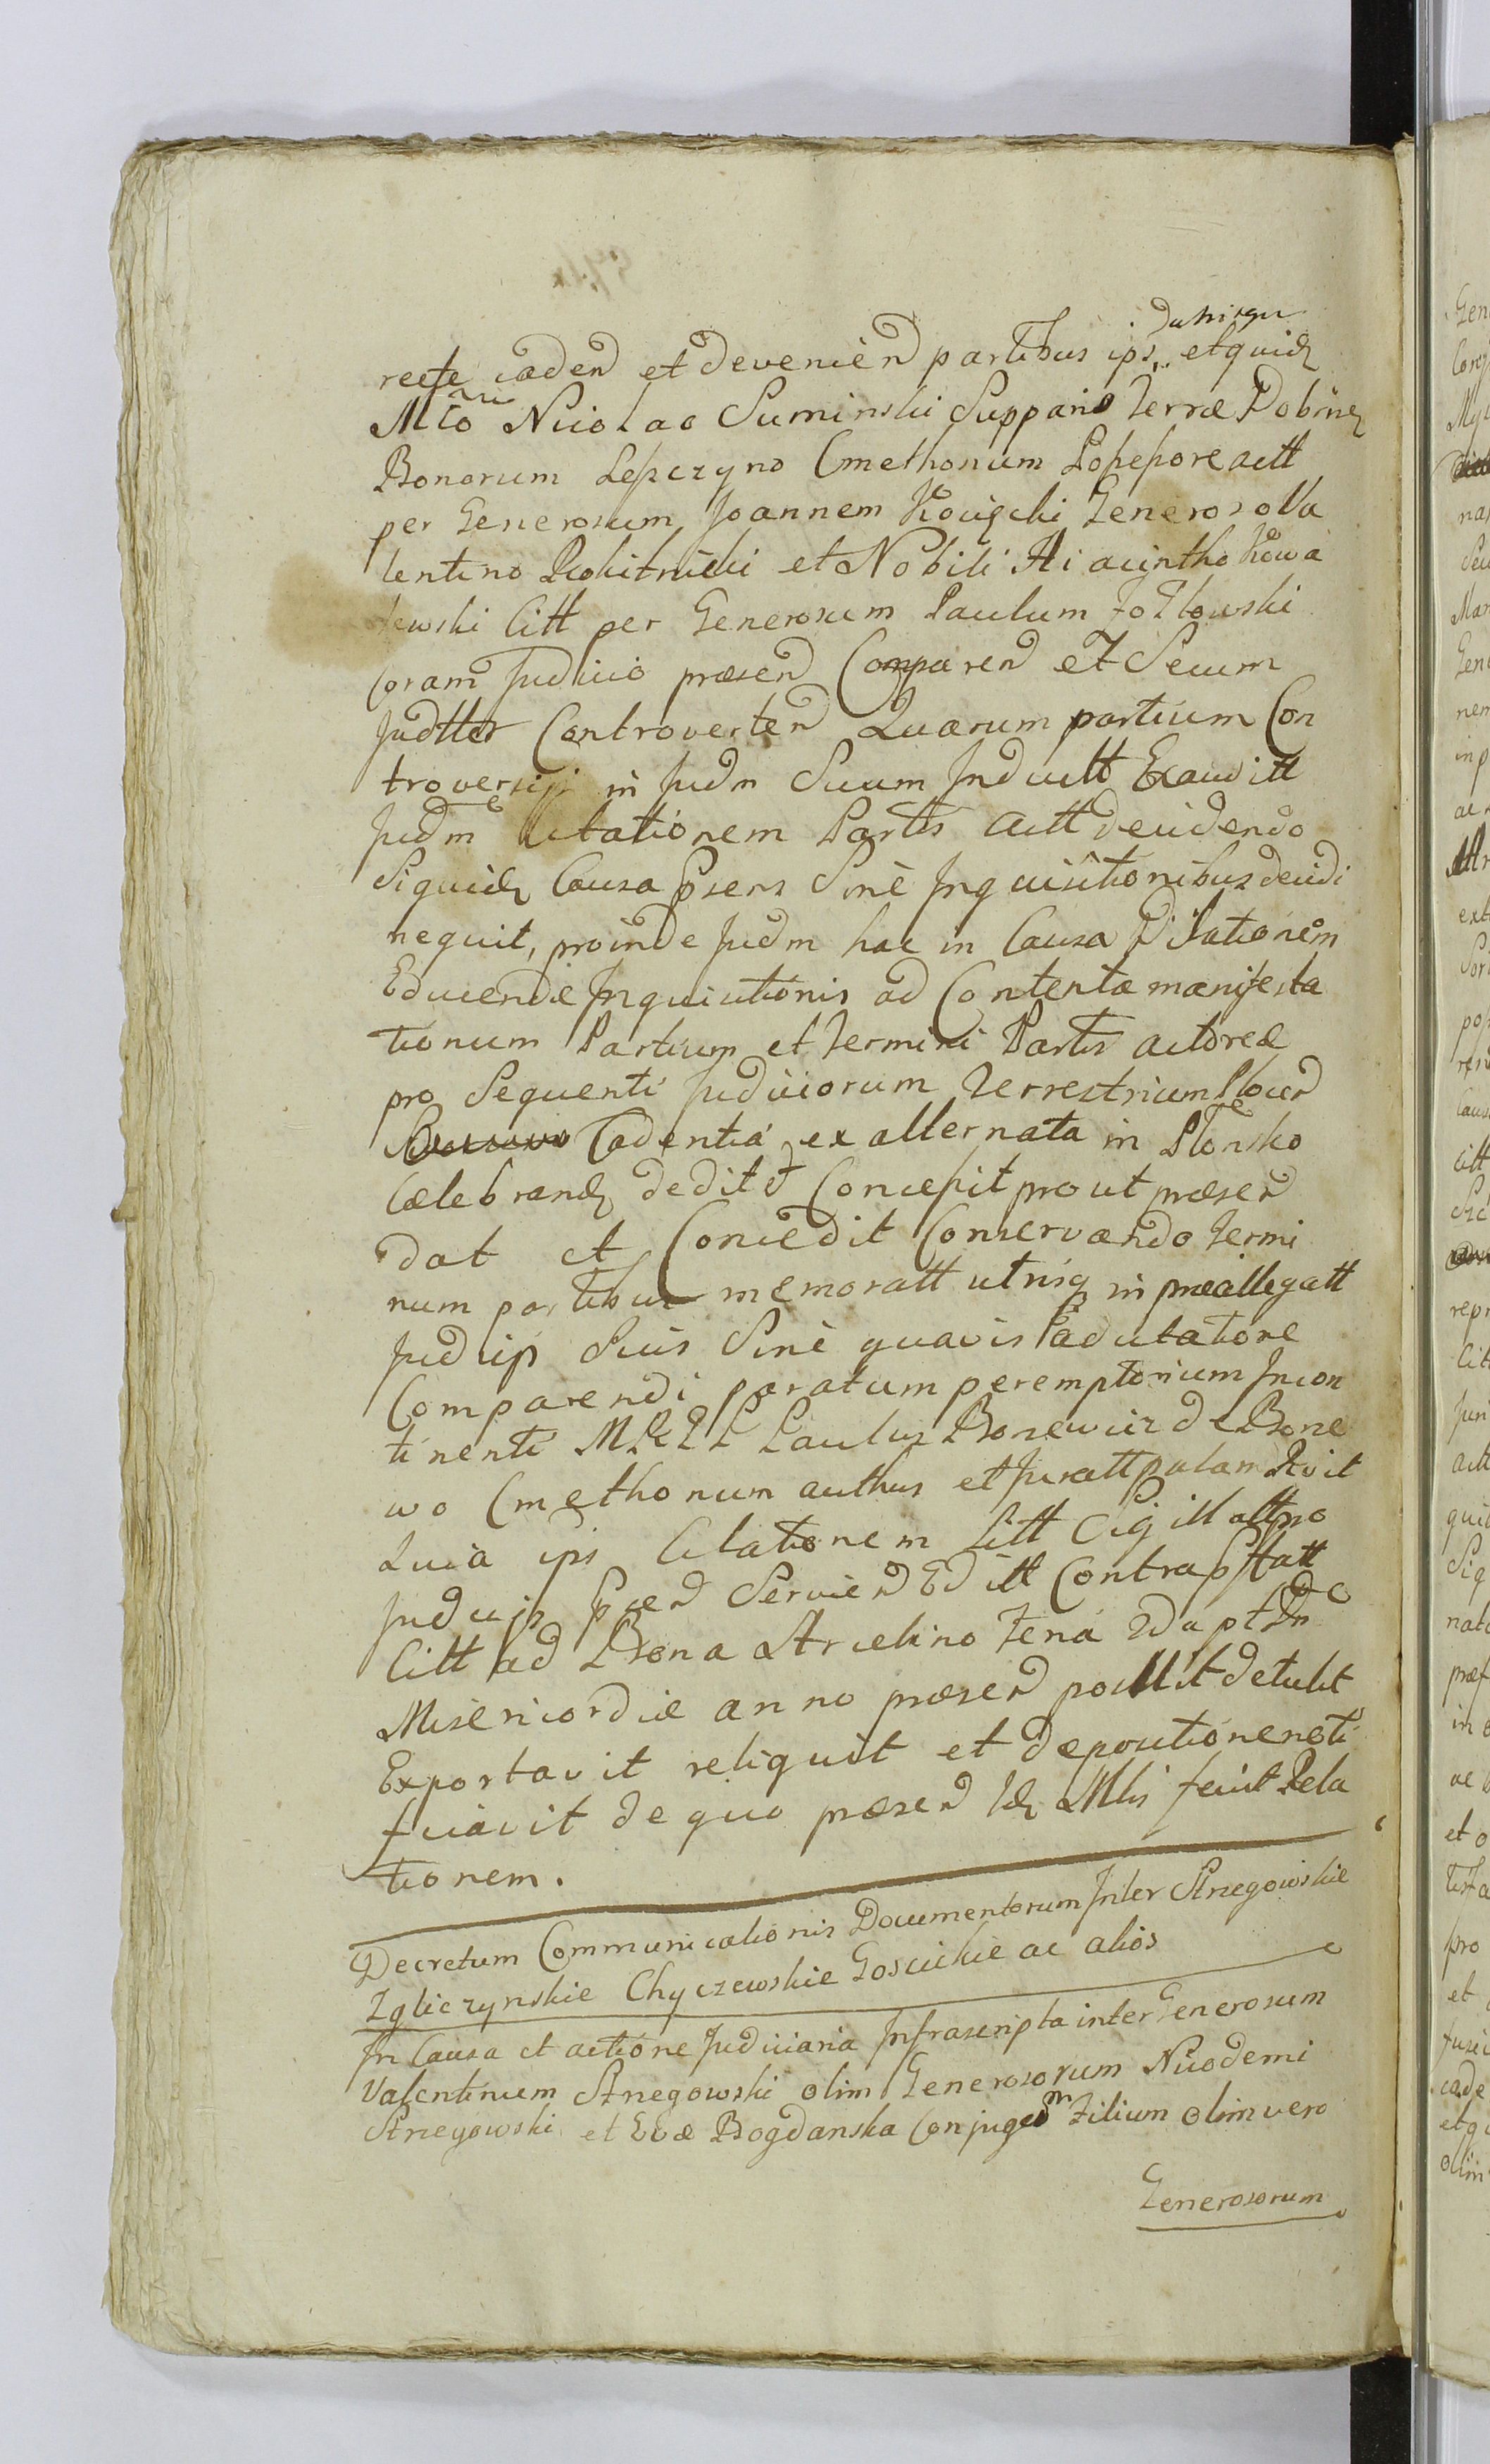 recte caden et devenien partibus ips. dutrisque etquidz
Mtco Nicolao Suminski Suppario Terræ Dobrinz
Bonorum Lepczyno Cmethonum Possessore actt
per Generosum Joannem Generoso Va
lentino Rokitnicki et Nobili Hiacintho Kowa
lewski Citt per Generosum Paulum Jozlowski
Coram Judicio præsen Comparen et Secum
Judtter Controverten Quarum partium Con
troversijs in Judm Suum Inductt Exauditt
Judm Citationem Partis Actt decidendo
Siquidz Causa Psens Sine Inquisitionibus decidi
nequit, proinde Judm hac in Causa Dilationem
Educendæ Inquisitionis ad Contenta manifesta
tionum Partium et Termini Partis actoreæ
pro Sequenti Judiciorum Terrestrium Plocen
Cadentia ex alternata in Plonsko
Cælebrandz dedit et Concessit prout præsen
dat et Concedit Conservando Termi
num partibus memoratt utrisq in præallegatt
Judcijs Suis Sine quavis adcitatione
Comparendi paratum peremptorium Incon
tinenti MRTR Paulus Bonewicz de Bone
wo Cmethonum authus et Juratt palam Rcvit
Quia ips Citationem Litt Sigillatt pro
Judcijs Psen Servien Editt Contra Psttatt
Citt ad Bona Strcelino Fena 2da pt Dnc
Misericordiæ anno præsen posuit detulit
Exportavit reliquit et depositione noti
ficavit de quo præsen Idz Mlis fecit Rela
tionem.
Decretum Communicationis Documentorum Inter Strzegowskie
Zgliczynskie Chyczewskie Goscickie ac alios
In Causa et actione Judiciaria Infrascripta inter Generosum
Valentinum Strzegowski olim Generosorum Nicodemi
Strzegowski et Evæ Bogdanska Conjugum Filium olim vero
Generosorum